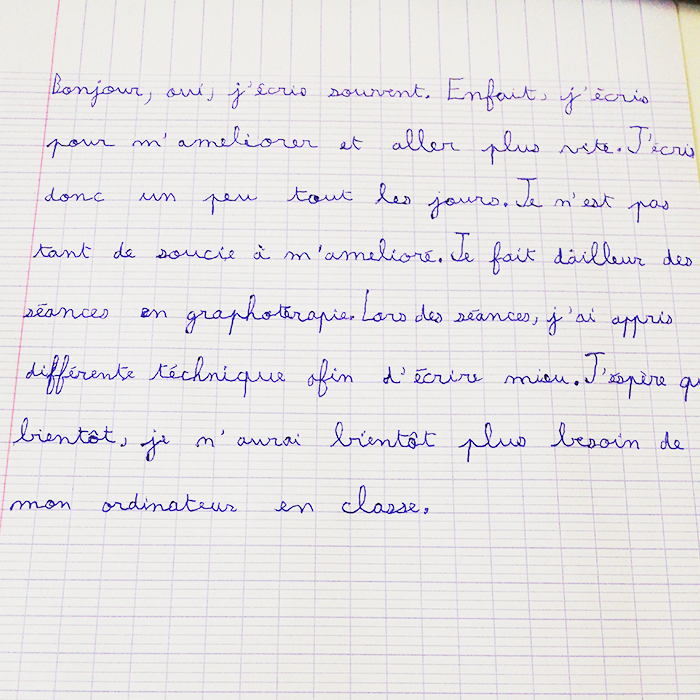 Bonjour, oui, j'écris souvent. Enfait, j'écris
pour m'ameliorer et aller plus vite. J'écris
donc un peu tout les jours. Je n'est pas
tant de soucie à m'amelioré. Je fait dâilleur des
séances en graphotérapie. Lors des séances, j'ai appris
différente téchnique afin d'écrire mieu. J'éspère qu
bientôt, je n'aurai bientôt plus besoin de
mon ordinateur en classe.